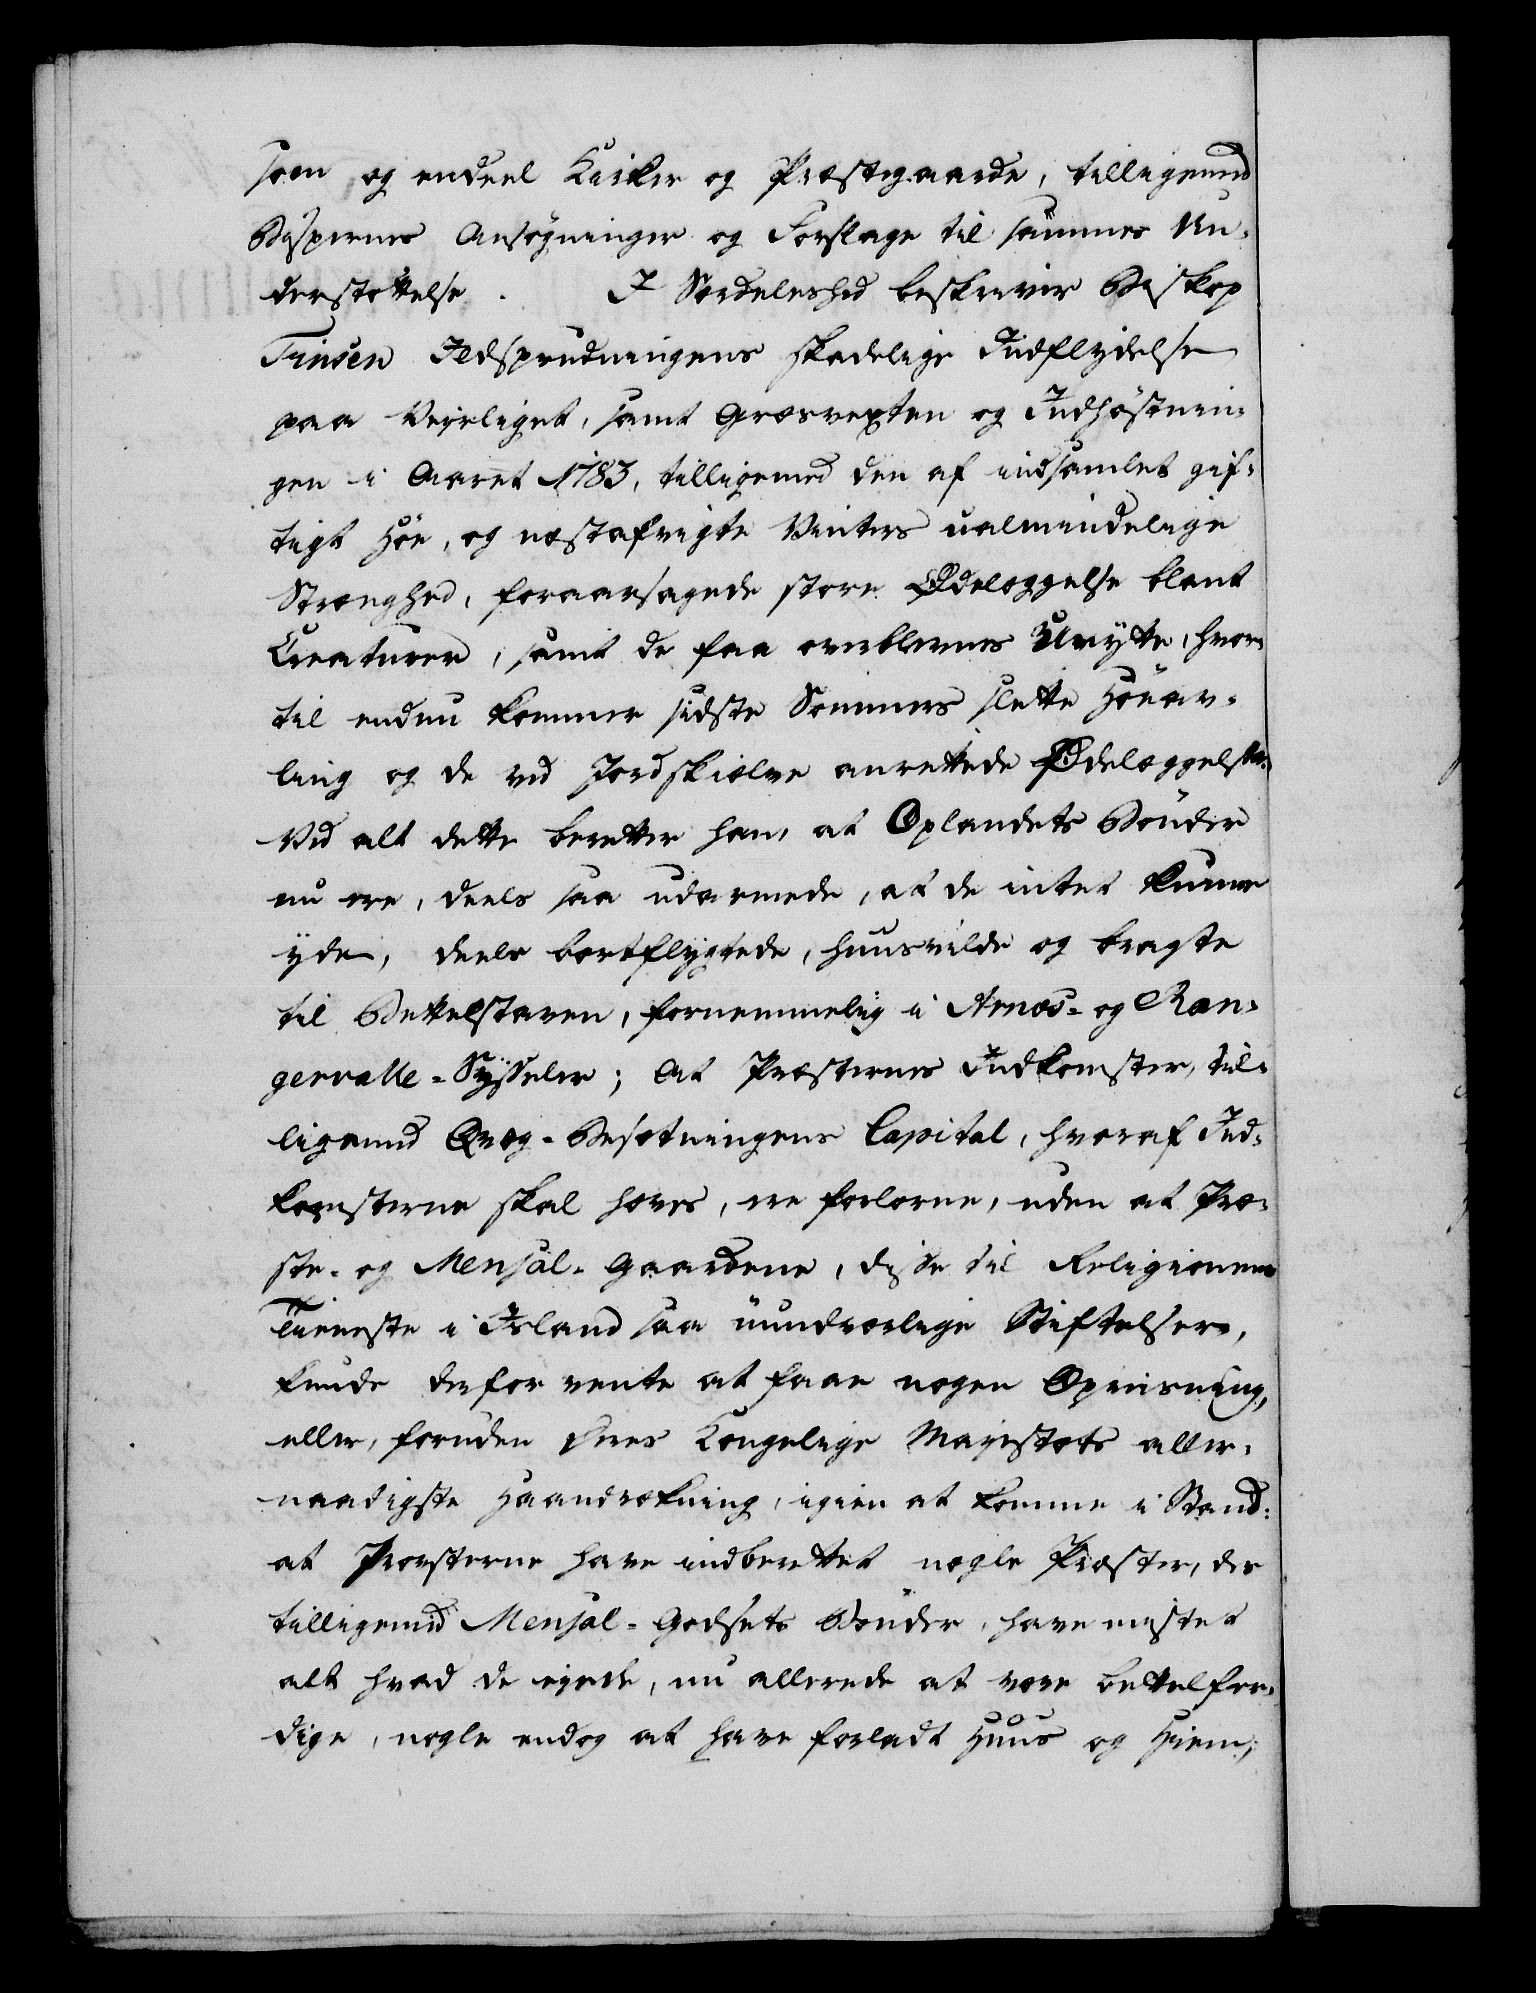 som og endeel Kirker og Præstegaarde, tilligemed
Bispernes Ansøgninger og Forslage til sammes Un-
derstøttelse. I Særdeleshed beskriver Biskop
Finsen Ildsprudningens skadelige Indflydelse
paa Veirliget, samt Græsvexten og Indhøstnin-
gen i Aaret 1783, tilligemed den af indsamlet gif-
tigt Høe, og næstafvigte Vinters ualmindelige
Strænghed, foraarsagede store Ødelæggelse blant
Creaturer, samt de faa overblevnes Unytte, hvor-
til endnu kommer sidste Sommers slette Høeav-
ling og de ved Jordskiælve anrettede Ødelæggelser.
Ved alt dette beretter han, at Oplandets Bønder
nu ere, deels saa udarmede, at de intet kunne
yde, deels bortflygtede, huusvilde og bragte
til Bettelstaven, fornemmelig i Arnæs- og Ran-
gervalle-Sysseler; At Præsternes Indkomster, til-
ligemed Qvæg-Besætningens Capital, hvoraf Ind-
komsterne skal haves, ere forlorne, uden at Præ-
ste- og Mensal-Gaardene, disse til Religionens
Tieneste i Island saa uundværlige Stiftelser,
kunde derfor vente at faae nogen Opreisning,
eller, foruden Deres Kongelige Majestæts aller-
naadigste Haandrækning, igien at komme i Stand:
at Provsterne have indberettet nogle Præster, der
tilligemed Mensal-Godsets Bønder, have mistet
alt hvad de eyede, nu allerede at være bettelfær-
dige, nogle endog at have forladt Huus og Hiem,